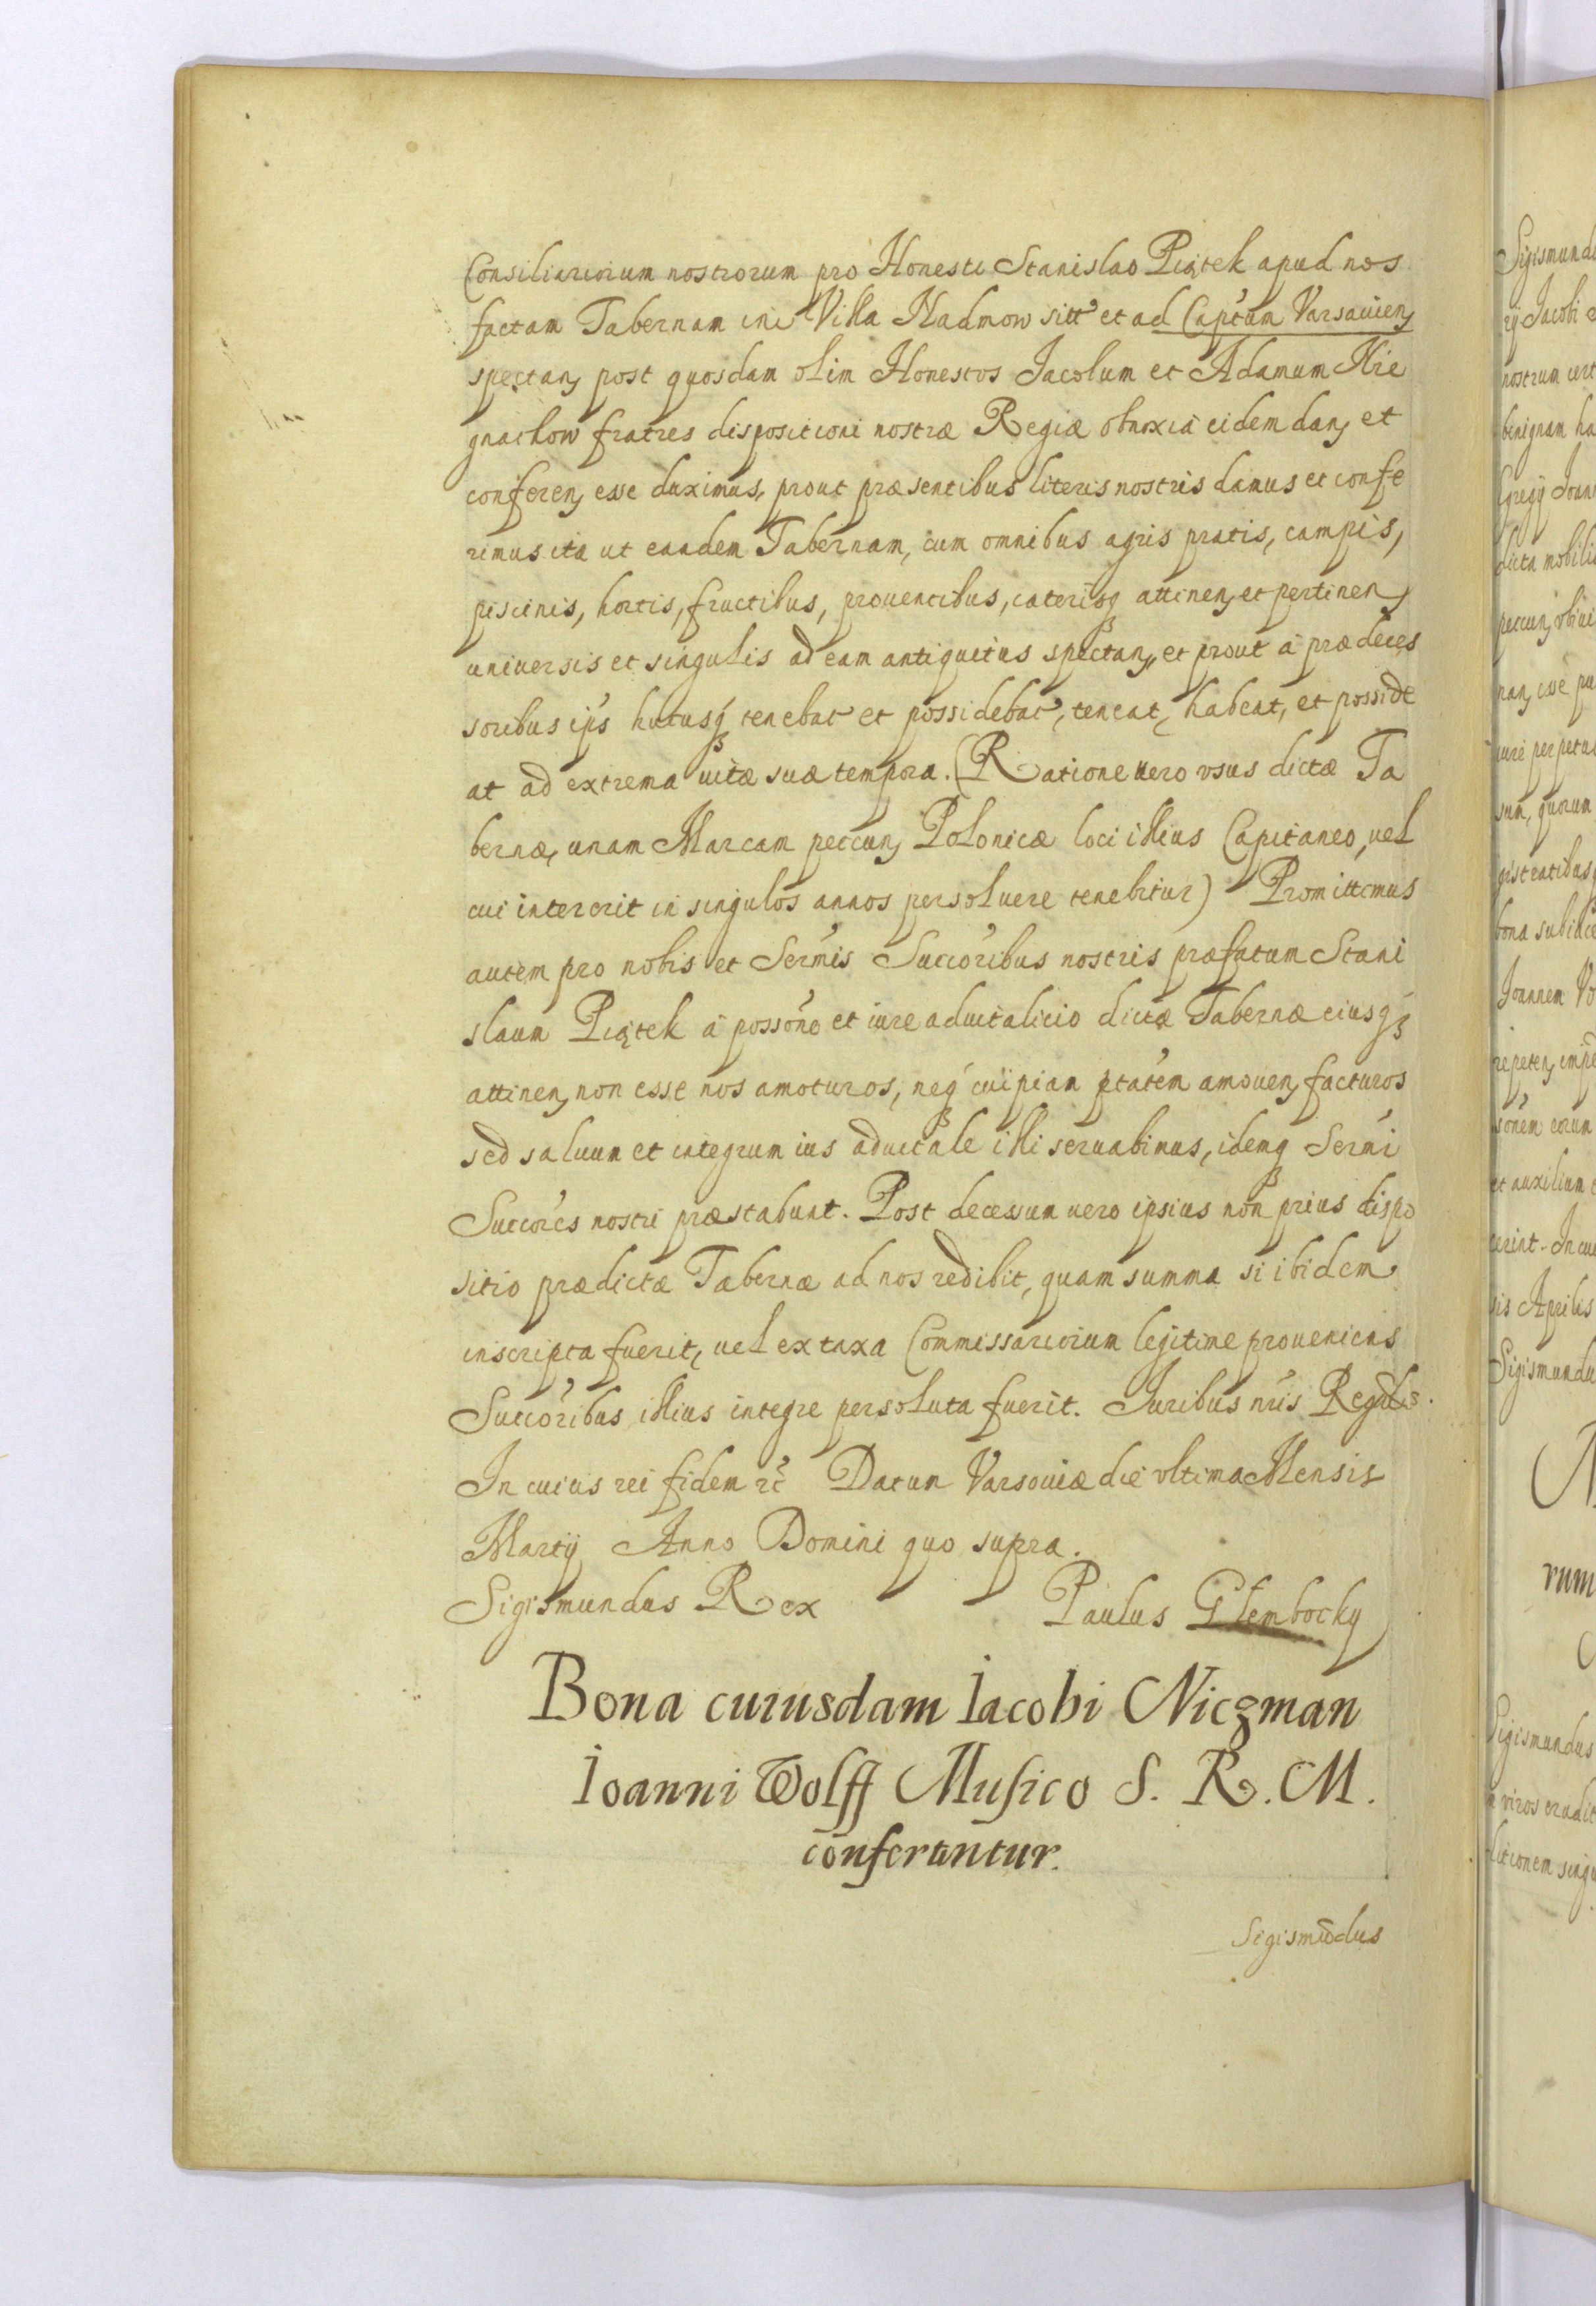 Consiliariorum nostrorum pro Honesto Stanislao Piątek apud nos
factam Tabernam in Villa Nadmow sitt et ad Captum Varsauien
spectan, post quosdam olim Honestos Jacobum et Adamum Nie
gnachow fratres dispositioni nostræ Regiæ obnoxiã eidem dan, et
conferen, esse duximus, prout præsentibus literis nostris damus et confe
rimus ita ut eandem Tabernam, cum omnibus agris pratis, campis,
piscinis, hortis, fructibus, prouentibus, cæterisq attinen, et pertinen,
universis et singulis ad eam antiquitus spectan, et prout à prædeces
soribus ips hucusq tenebat et possidebat, teneat, habeat, et posside
at ad extrema vitæ suæ tempora. (Ratione uero usus dictæ Ta
bernæ, unam Marcam peccun, Polonicæ loci illius Capitaneo, uel
cui intererit in singulos annos persoluere tenebitur) Promittimus
autem pro nobis et Sermis Succoribus nostris præfatum Stani
slaum Piątek à possone et iure aduitalicio dictæ Tabernæ eiusq
attinen, non esse nos amoturos, neq cuipiam ptatem amouen, facturos
sed saluum et integrum ius aduitale illi seruabimus, idemq Sermi
Succores nostri præstabunt. Post decessum uero ipsius non prius dispo
sitio prædictæ Tabernæ ad nos redibit, quam summa si ibidem
inscripta fuerit, uel ex taxa Commissariorum legitime proueniens
Succoribus illius integre persoluta fuerit. Iuribus nris Regalibs.
In cuius rei fidem rc Datum Varsouiæ die vltima Mensis
Martij Anno Domini quo supra.
Sigismundus Rex Paulus Glembocky
Bona cuiusdam Iacobi Niczman
Ioanni Wolff Musico S. R. M.
conferuntur.
Sigismūdus